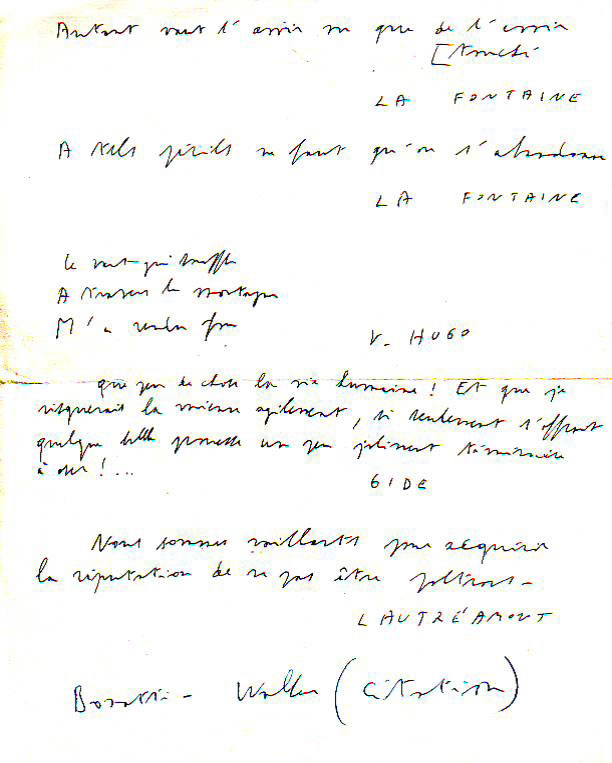 Autant vaut l'avoir vu que de l'avoir
[touché
LA FONTAINE
A tels périls ne faut qu'on s'abandonne
LA FONTAINE
Le vent qui souffle
A travers la montagne
M'a rendu fou
V. HUGO
que peu de chose la vie humaine ! Et que je
risquerais la mienne agilement, si seulement s'offrait
quelque belle prouesse un peu joliment téméraire
à oser !...
GIDE
Nous sommes vaillants pour acquérir
la réputation de ne pas être poltrons -
LAUTRÉAMONT
Bonatti - Walker (citation)